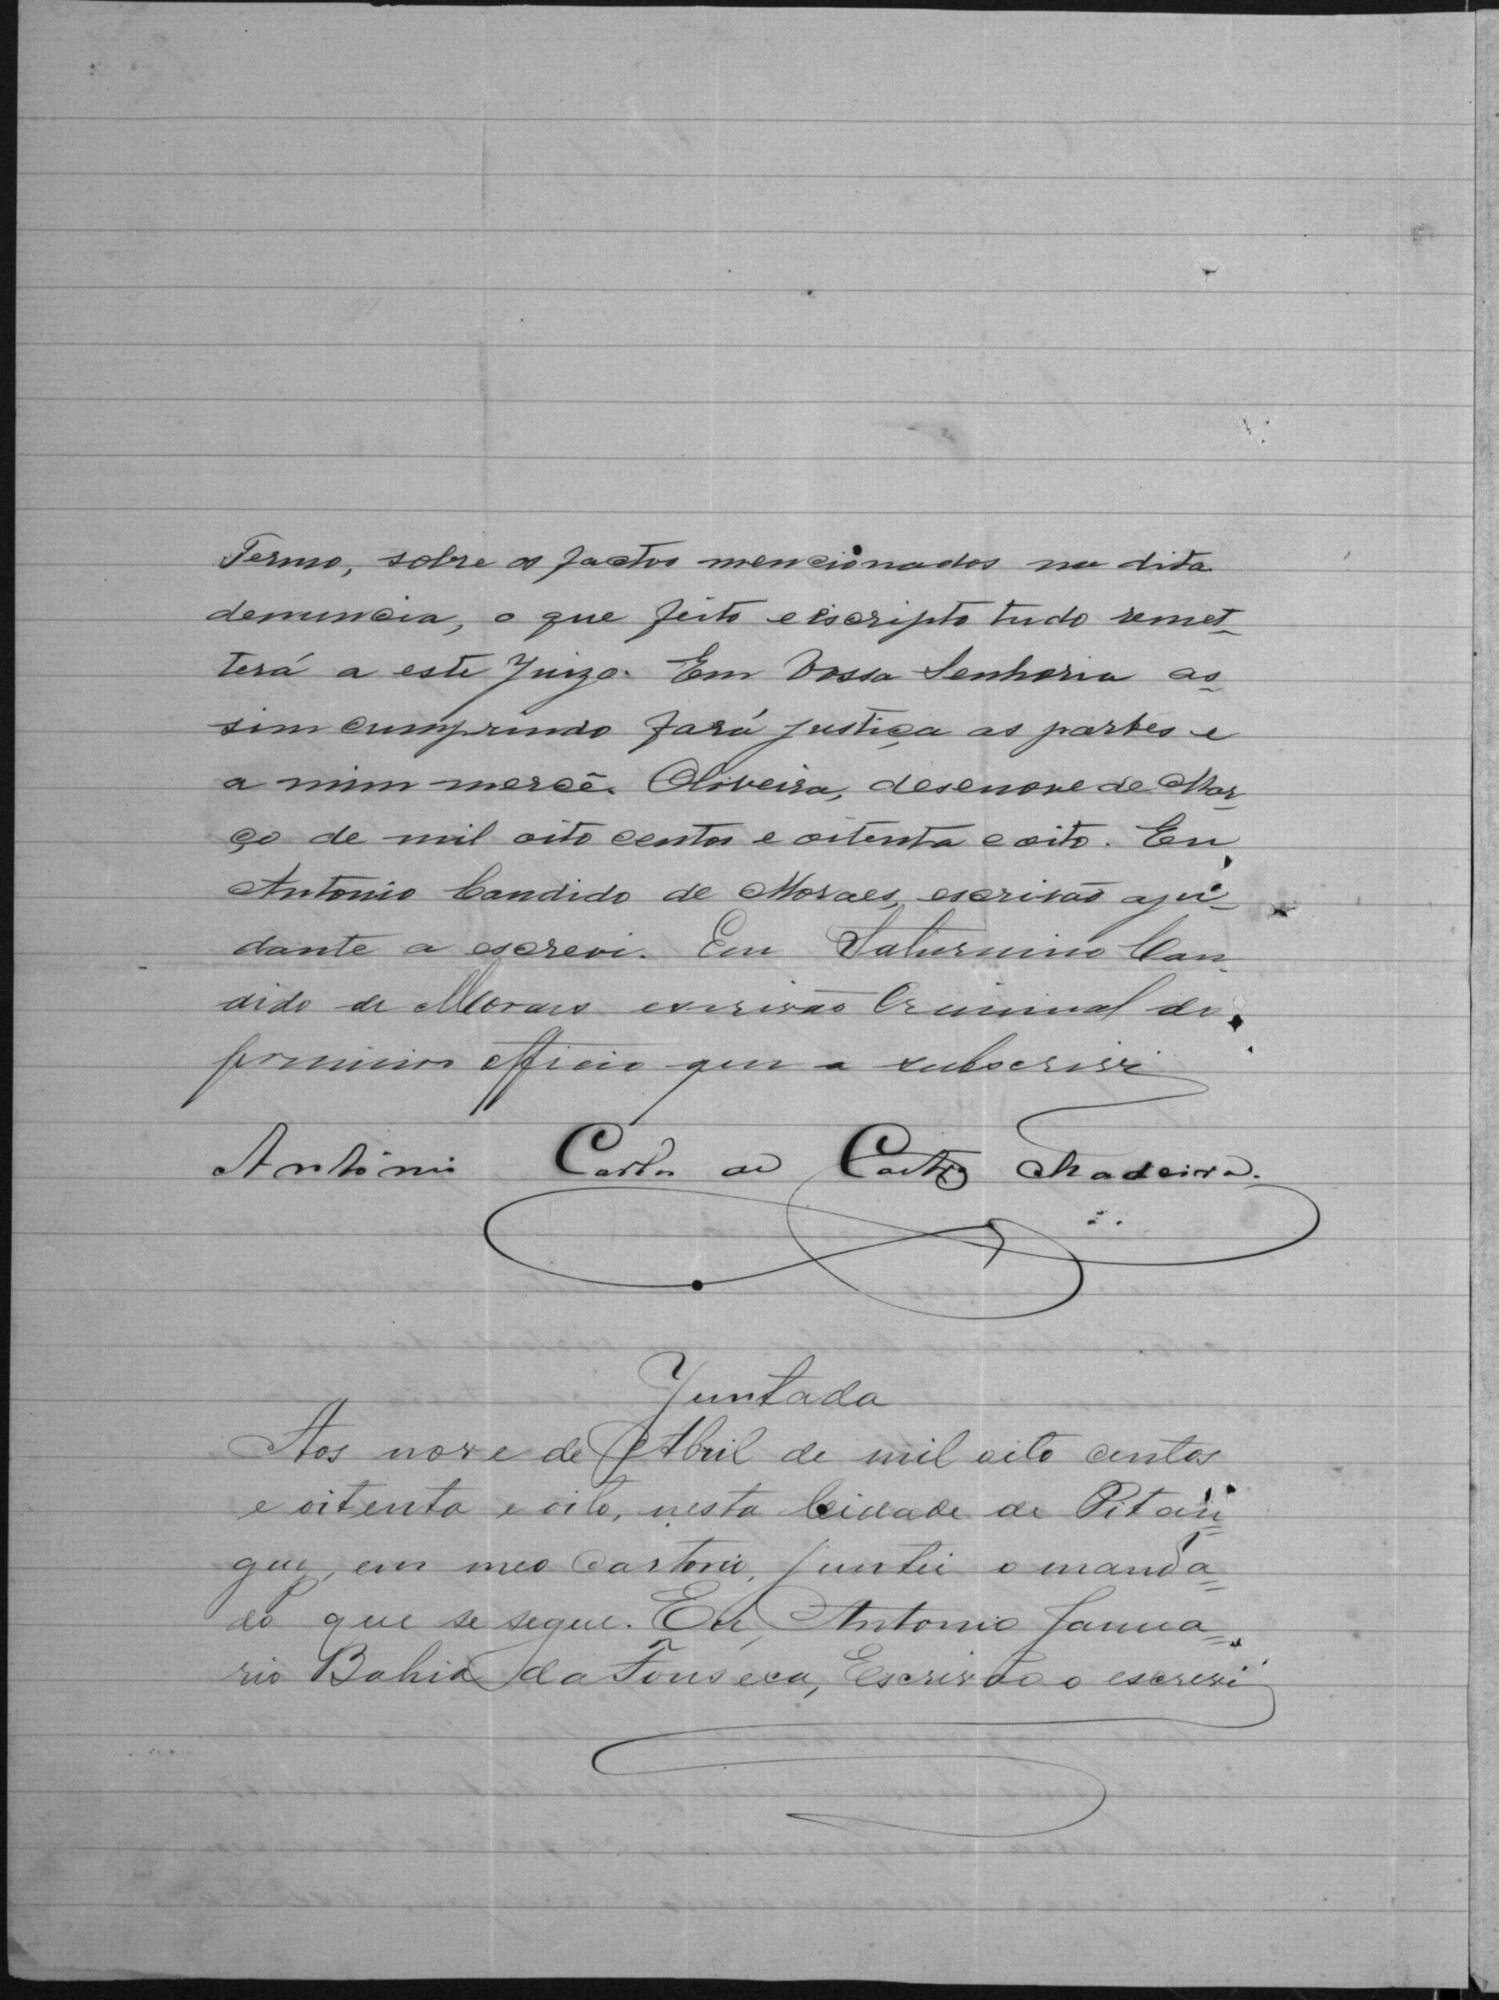 Termo, sobre os factos mencionados na dita
denuncia, o que feito e escripto tudo remet-
terá a este Juizo. Em Vossa Senhoria as-
sim cumprindo fará justiça as partes e
a mim mercê. Oliveira, desenove de Mar-
ço de mil oito centos e oitenta e oito. Eu
Antonio Candido de Moraes, escrivão aju-
dante a escrevi. Eu Saturnino Can-
dido de Moraes escrivão Criminal do
primeiro officio que a subscrivi
Antônio Carlos de Castro Madeira.
Juntada
Aos nove de Abril de mil oito centos
e oitenta e oito, nesta Cidade de Pitan=
guy, em meo Cartorio, juntei o manda=
do que se segue. Eu, Antonio Janua=
rio Bahia da Fonseca, Escrivão o escrevi